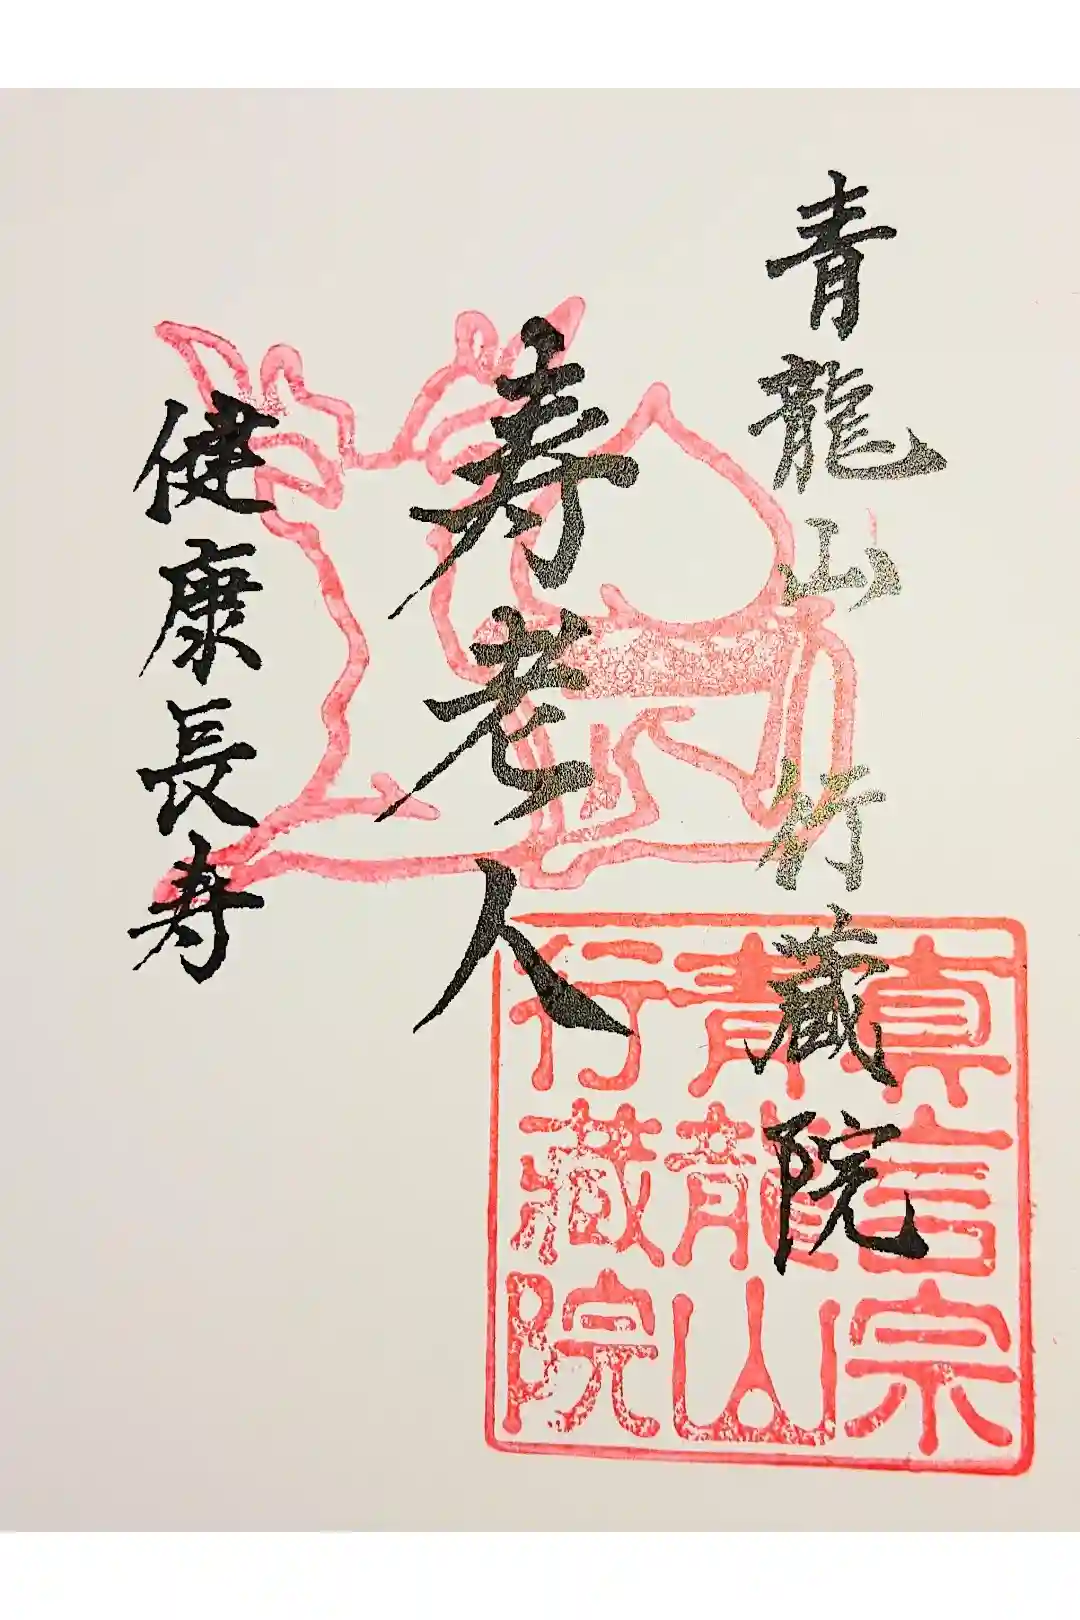 青龍山行蔵院
寿老人
健康長寿
真言宗
青龍山
行蔵院